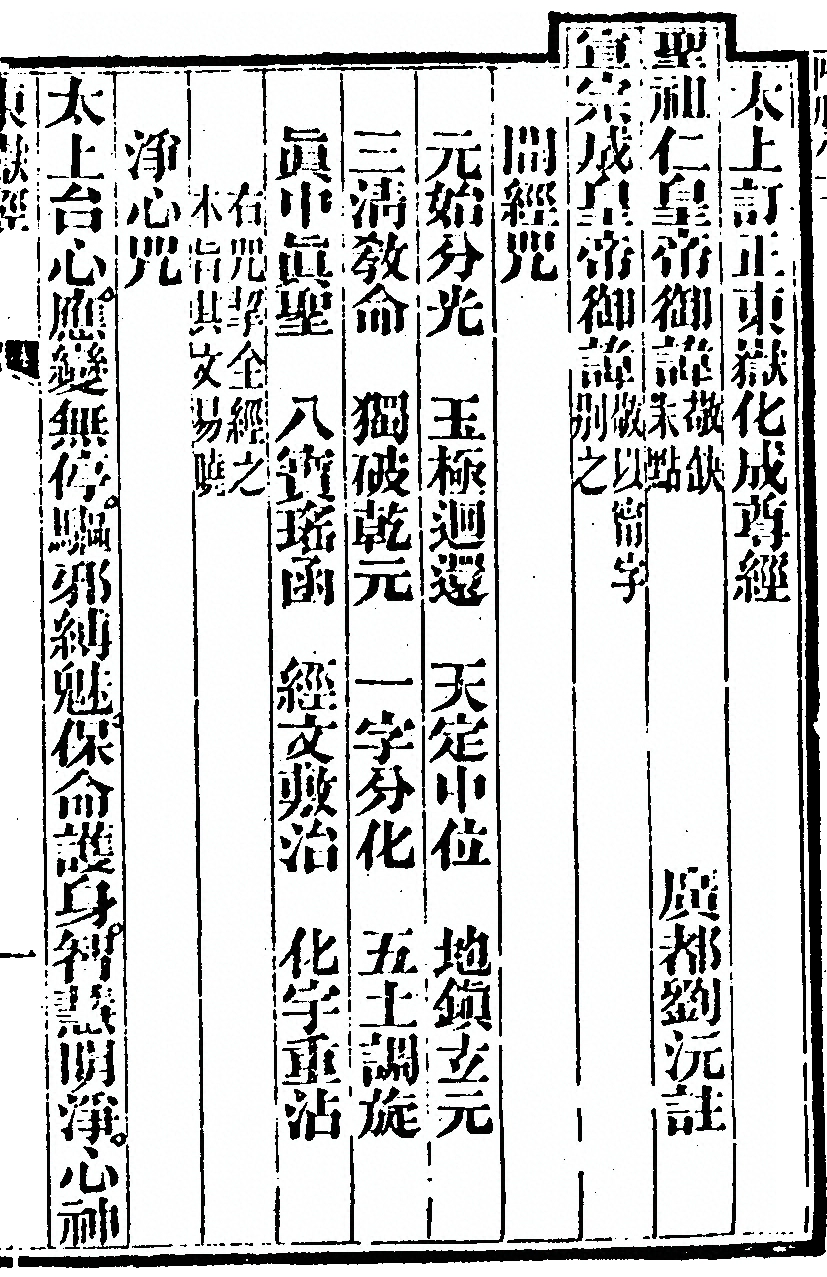 太上訂正東嶽化成尊經
聖祖仁皇帝御諱敬缺末點
廣都劉沅註
宣宗成皇帝御諱敬以甯字別之
開經咒
元始分光 玉極迴還 天定中位 地鎮玄元
三清教命 獨破乾元 一字分化 五土調旋
眞中眞聖 八寶瑤函 經文敷治 化宇重沾
右咒挈全經之
本旨其文易曉
淨心咒
太上台心。應變無停。驅邪縛魅。保命護身。智慧明淨。心神
東嶽經